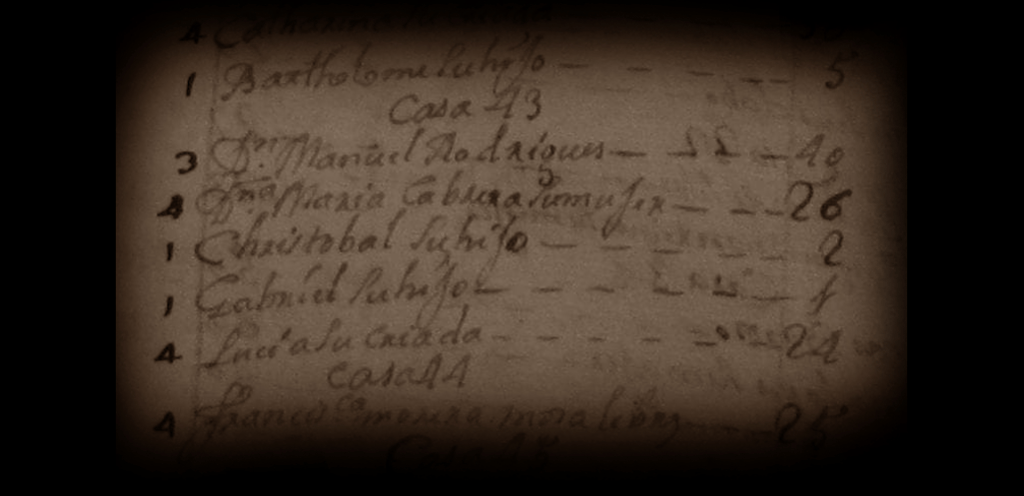 4 Catharina
1 Bartholome su hijo — — — — 5
Casa 43
3 Dn. Manuel Rodrigues — — — 40
4 Dna Maria Cabrera su mujer — — — 26
1 Christobal su hijo — — — — — 2
1 Gabriel su hijo — — — — — 1
4 Lucia su criada — — — — — 24
casa 44
4 Francisca morera — — 25
Casa 45